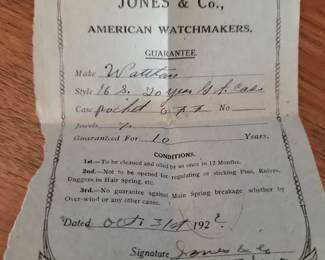 JONES & Co.,
AMERICAN WATCHMAKERS.
GUARANTEE.
Make Waltham
Style 16 S. 20 year G. f. Case
Case pocket No
Jewels 7
Guaranteed For 10 Years.
CONDITIONS.
1st.—To be cleaned and oiled by us once in 12 Months.
2nd.—Not to be opened for regulating or sticking Pins, Knives,
Daggers in Hair Spring, etc.
3rd.—No guarantee against Main Spring breakage whether by
Over-wind or any other cases.
Dated Oct 31st 192
Signature Jones & Co